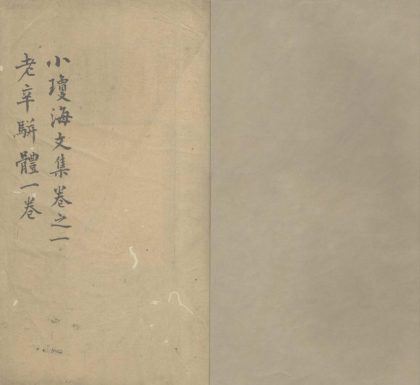 小瓊海文集卷之一
老辛駢體一卷